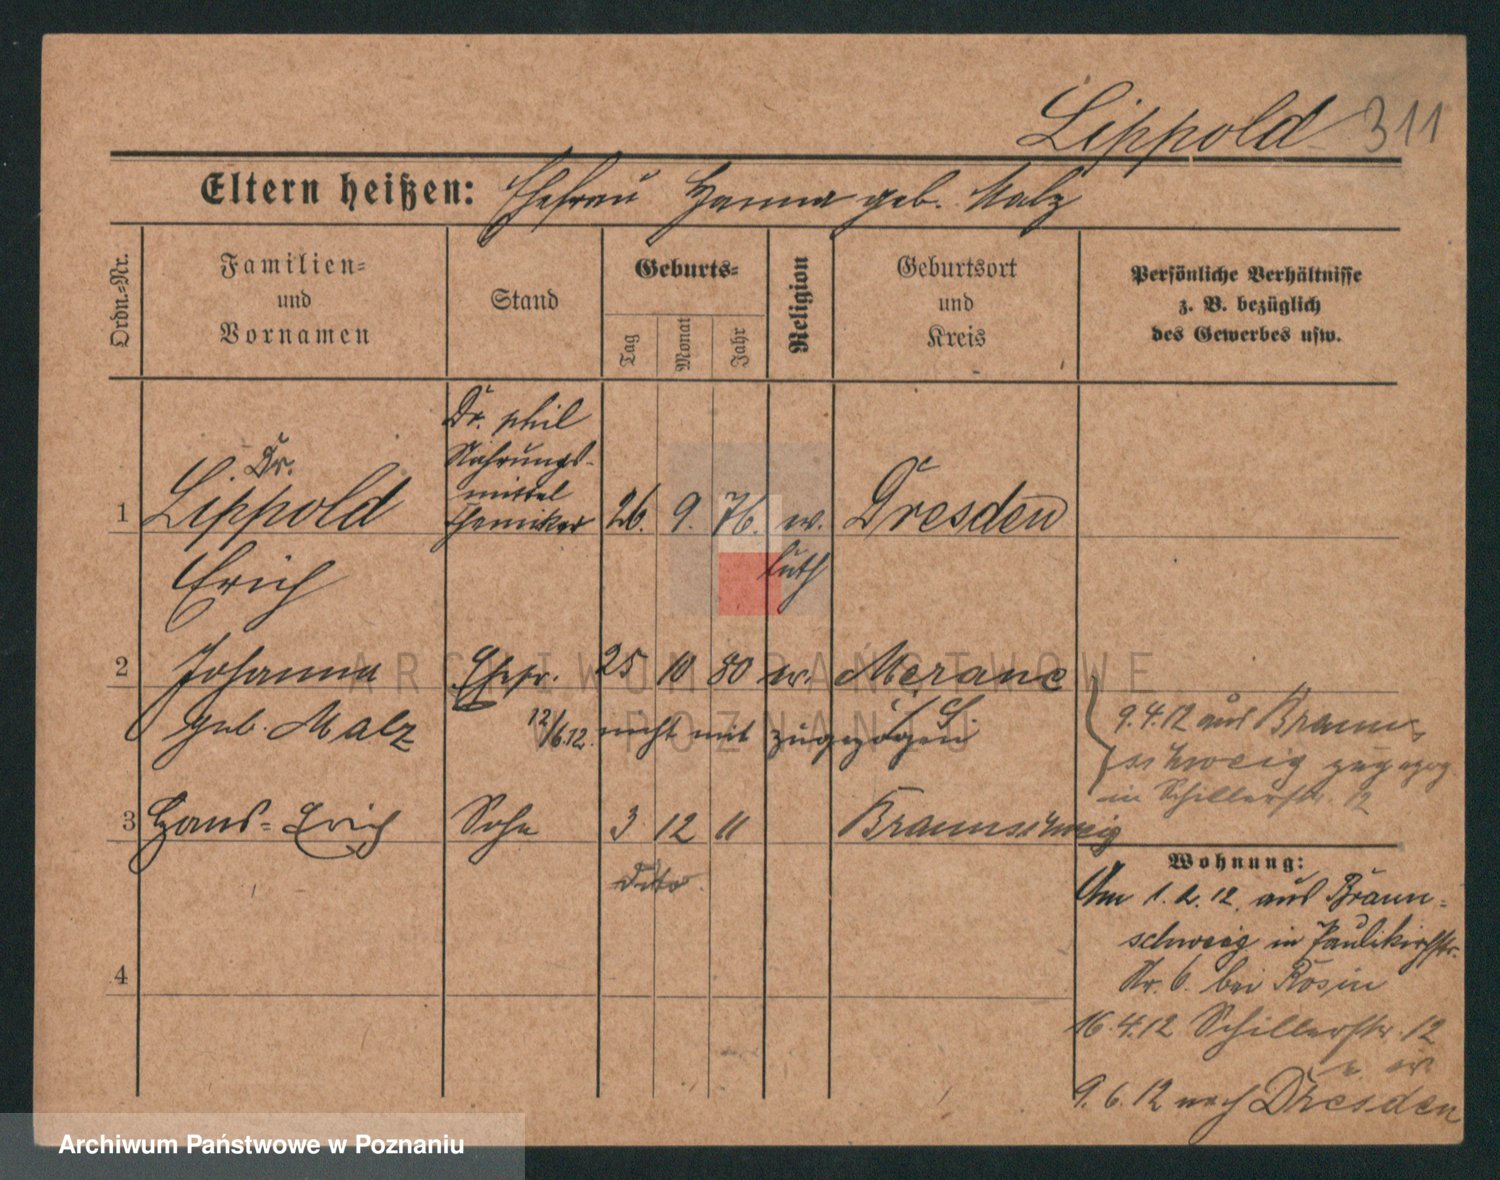 Lippold 311
Eltern heißen: Ehefrau Hanna geb. Malz
Ordn.-Nr.
Familien-
und
Vornamen
Stand
Geburts-
Tag
Monat
Jahr
Religion
Geburtsort
und
Kreis
Persönliche Verhältnisse
z. B. bezüglich
des Gewerbes usw.
Dr. phil
Nahrungs-
mittel
Chemiker
Dr.
1 Lippold 26. 9. 76. ev. Dresden
Erich luth
2 Johanna Ehefr. 25 10 80 ev. Merane
geb. Malz 12/6.12. nicht mit zugezogen
9.4.12 aus Braun-
schweig zugezog
in Schillerstr. 12
3 Hans-Erich Sohn 3 12 11 Braunschweig
dito.
Wohnung:
Am 1.2.12. aus Braun-
schweig in Paulikirchstr.
Nr. 6. bei Rosin
4
16.4.12 Schillerstr. 12
9.6.12 nach Dresden
ARCHIWUM PAŃSTWOWE
W POZNANIU
Archiwum Państwowe w Poznaniu